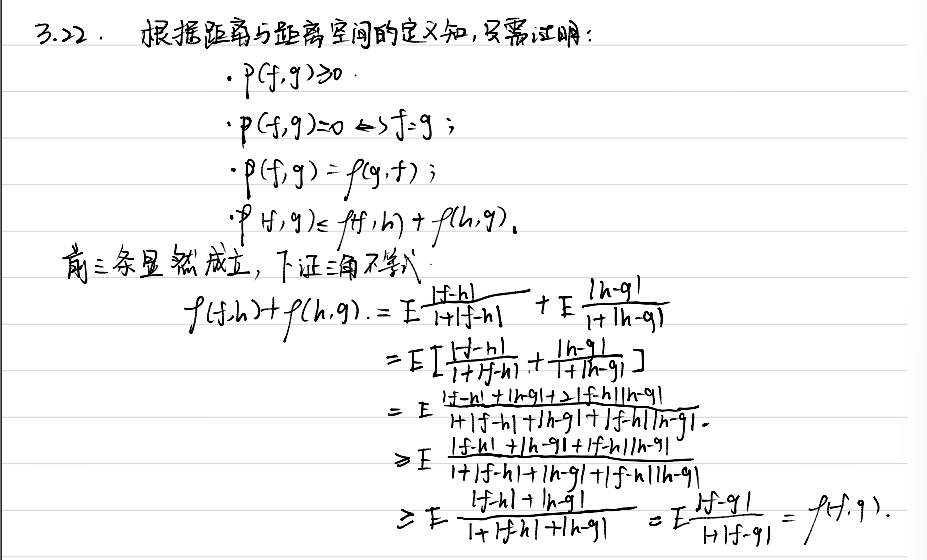 3.22. 根据距离与距离空间的定义知,只需证明:
· ρ(f,g)≥0.
· ρ(f,g)=0 ⇔ f=g;
· ρ(f,g)=ρ(g,f);
· ρ(f,g)≤ρ(f,h)+ρ(h,g).
前三条显然成立, 下证三角不等式.
ρ(f,h)+ρ(h,g).=E |f-h|/(1+|f-h|) + E |h-g|/(1+|h-g|)
= E[|f-h|/(1+|f-h|) + |h-g|/(1+|h-g|)]
= E (|f-h|+|h-g|+2|f-h||h-g|)/(1+|f-h|+|h-g|+|f-h||h-g|).
≥ E (|f-h|+|h-g|+|f-h||h-g|)/(1+|f-h|+|h-g|+|f-h||h-g|)
≥ E (|f-h|+|h-g|)/(1+|f-h|+|h-g|) = E |f-g|/(1+|f-g|) = ρ(f,g).